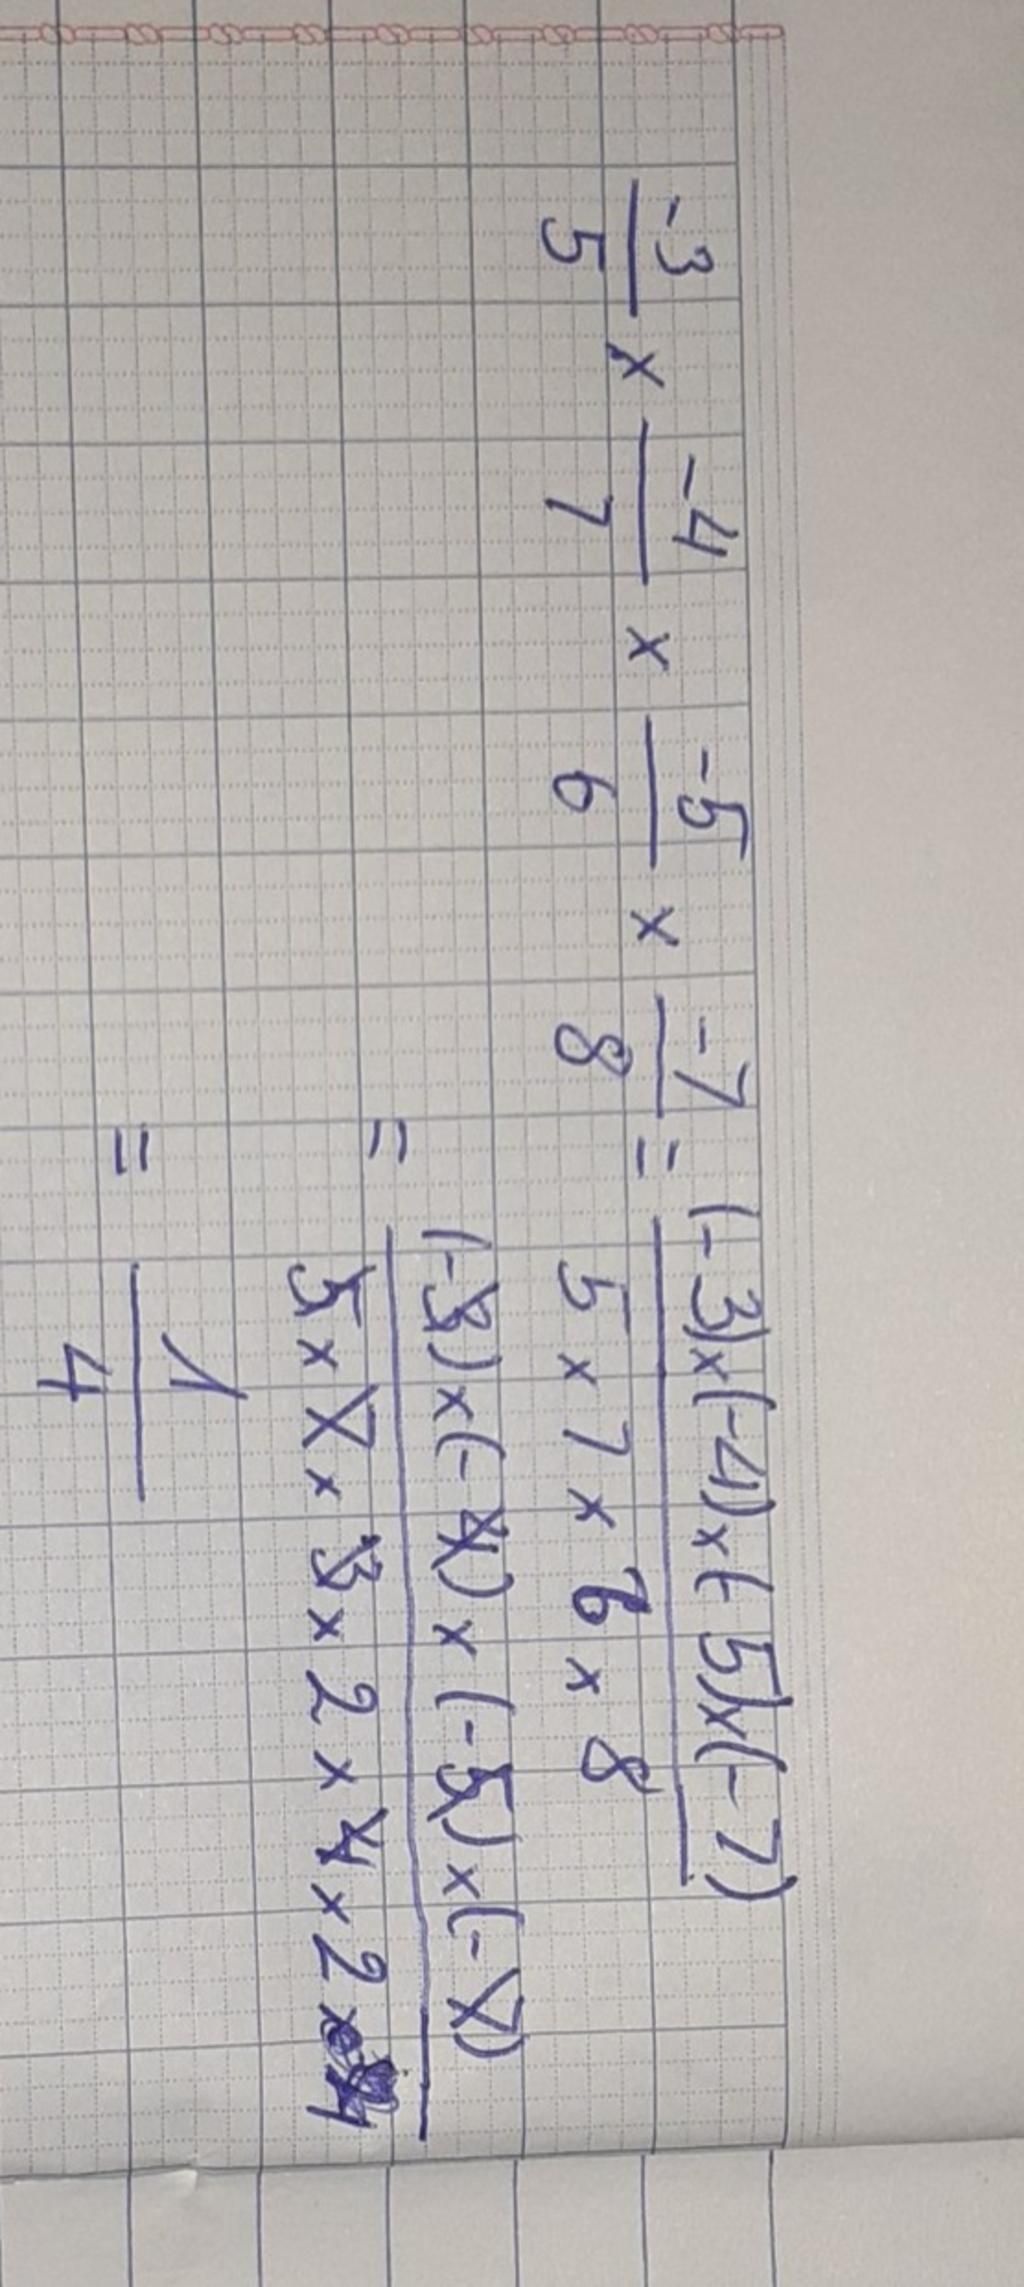 -3/5 × -4/7 × -5/6 × -7/8 = (-3)×(-4)×(-5)×(-7)/5×7×6×8
= (-3)×(-4)×(-5)×(-7)/5×7×3×2×4×2
= 1/4